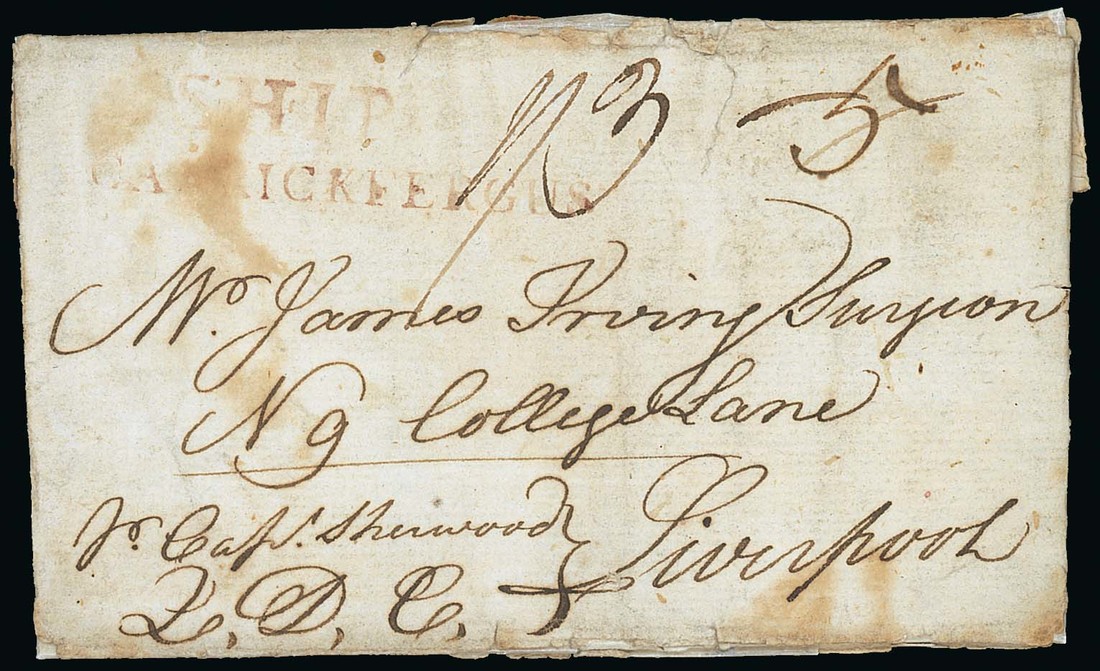 SHIP
CARRICKFERGUS
1/3 5
Mr. James Irving Surgeon
N 9 College Lane
pr. Capt. Sherwood
Q. D. C. Liverpool